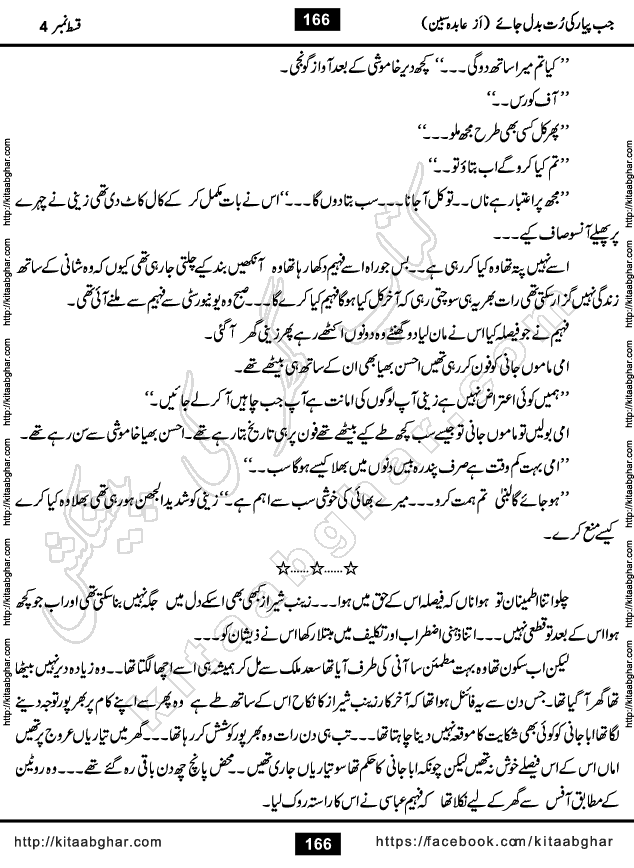 جب پیار کی رُت بدل جائے (از عابدہ سبین)
166
قسط نمبر 4
’’کیا تم میرا ساتھ دو گی۔۔۔‘‘ کچھ دیر خاموشی کے بعد آواز گونجی۔
’’آف کورس۔۔‘‘
’’پھر کل کسی بھی طرح مجھ ملو۔۔۔‘‘
’’تم کیا کرو گے اب بتاؤ تو۔۔‘‘
’’مجھ پر اعتبار ہے ناں۔۔ تو کل آ جانا۔۔۔ سب بتا دوں گا۔۔۔‘‘ اس نے بات مکمل کر کے کال کاٹ دی تھی زینی نے چہرے
پر پھیلے آنسو صاف کیے۔۔۔
اسے نہیں پتہ تھا وہ کیا کر رہی ہے۔۔ بس جو راہ اسے فہیم دکھا رہا تھا وہ آنکھیں بند کیے چلتی جا رہی تھی کیوں کہ وہ شانی کے ساتھ
زندگی نہیں گزار سکتی تھی رات بھر یہ ہی سوچتی رہی کہ آخر کل کیا ہو گا فہیم کیا کرے گا۔۔۔ صبح وہ یونیورسٹی سے فہیم سے ملنے آئی تھی۔
فہیم نے جو فیصلہ کیا اس نے مان لیا دو گھنٹے وہ دونوں اکٹھے رہے پھر زینی گھر آ گئی۔
امی ماموں جانی کو فون کر رہی تھیں احسن بھیا بھی ان کے ساتھ ہی بیٹھے تھے۔
’’ہمیں کوئی اعتراض نہیں ہے زینی آپ لوگوں کی امانت ہے آپ جب چاہیں آ کر لے جائیں۔‘‘
امی بولیں تو ماموں جانی تو جیسے سب کچھ طے کیے بیٹھے تھے فون پر ہی تاریخ بتا رہے تھے۔ احسن بھیا خاموشی سے سن رہے تھے۔
’’امی بہت کم وقت ہے صرف پندرہ بیس دنوں میں بھلا کیسے ہو گا سب۔۔‘‘
’’ہو جائے گا لبنیٰ تم ہمت کرو۔۔۔ میرے بھائی کی خوشی سب سے اہم ہے۔‘‘ زینی کو شدید الجھن ہو رہی تھی بھلا وہ کیا کرے
کیسے منع کرے۔
☆......☆......☆
چلو اتنا اطمینان تو ہوا ناں کہ فیصلہ اس کے حق میں ہوا۔۔۔ زینب شیراز کبھی بھی اسکے دل میں جگہ نہیں بنا سکتی تھی اور اب جو کچھ
ہوا اس کے بعد تو قطعی نہیں۔۔۔ اتنا ذہنی اضطراب اور تکلیف میں مبتلا رکھا اس نے ذیشان کو۔۔۔
لیکن اب سکون تھا وہ بہت مطمئن سا آنی کی طرف آیا تھا سعد ملک سے مل کر ہمیشہ ہی اسے اچھا لگتا تھا۔۔ وہ زیادہ دیر نہیں بیٹھا
تھا گھر آ گیا تھا۔ جس دن سے یہ فائنل ہوا تھا کہ آخر کار زینب شیراز کا نکاح اس کے ساتھ طے ہے وہ پھر سے اپنے کام پر بھرپور توجہ دینے
لگا تھا ابا جانی کو کوئی بھی شکایت کا موقعہ نہیں دینا چاہتا تھا۔۔ تب ہی دن رات وہ بھرپور کوشش کر رہا تھا۔۔ گھر میں تیاریاں عروج پر تھیں
اماں اس کے اس فیصلے خوش نہ تھیں لیکن چونکہ ابا جانی کا حکم تھا سو تیاریاں جاری تھیں۔۔ محض پانچ چھ دن باقی رہ گئے تھے۔۔۔ وہ روٹین
کے مطابق آفس سے گھر کے لیے نکلا تھا کہ فہیم عباسی نے اس کا راستہ روک لیا۔
http://kitaabghar.com
166
https://facebook.com/kitaabghar
http://kitaabghar.com
http://kitaabghar.com
http://kitaabghar.com
http://kitaabghar.com
http://kitaabghar.com
http://kitaabghar.com
http://kitaabghar.com
http://kitaabghar.com
http://kitaabghar.com
http://kitaabghar.com
http://kitaabghar.com
http://kitaabghar.com
کتاب گھر کی پیشکش
kitaabghar.com